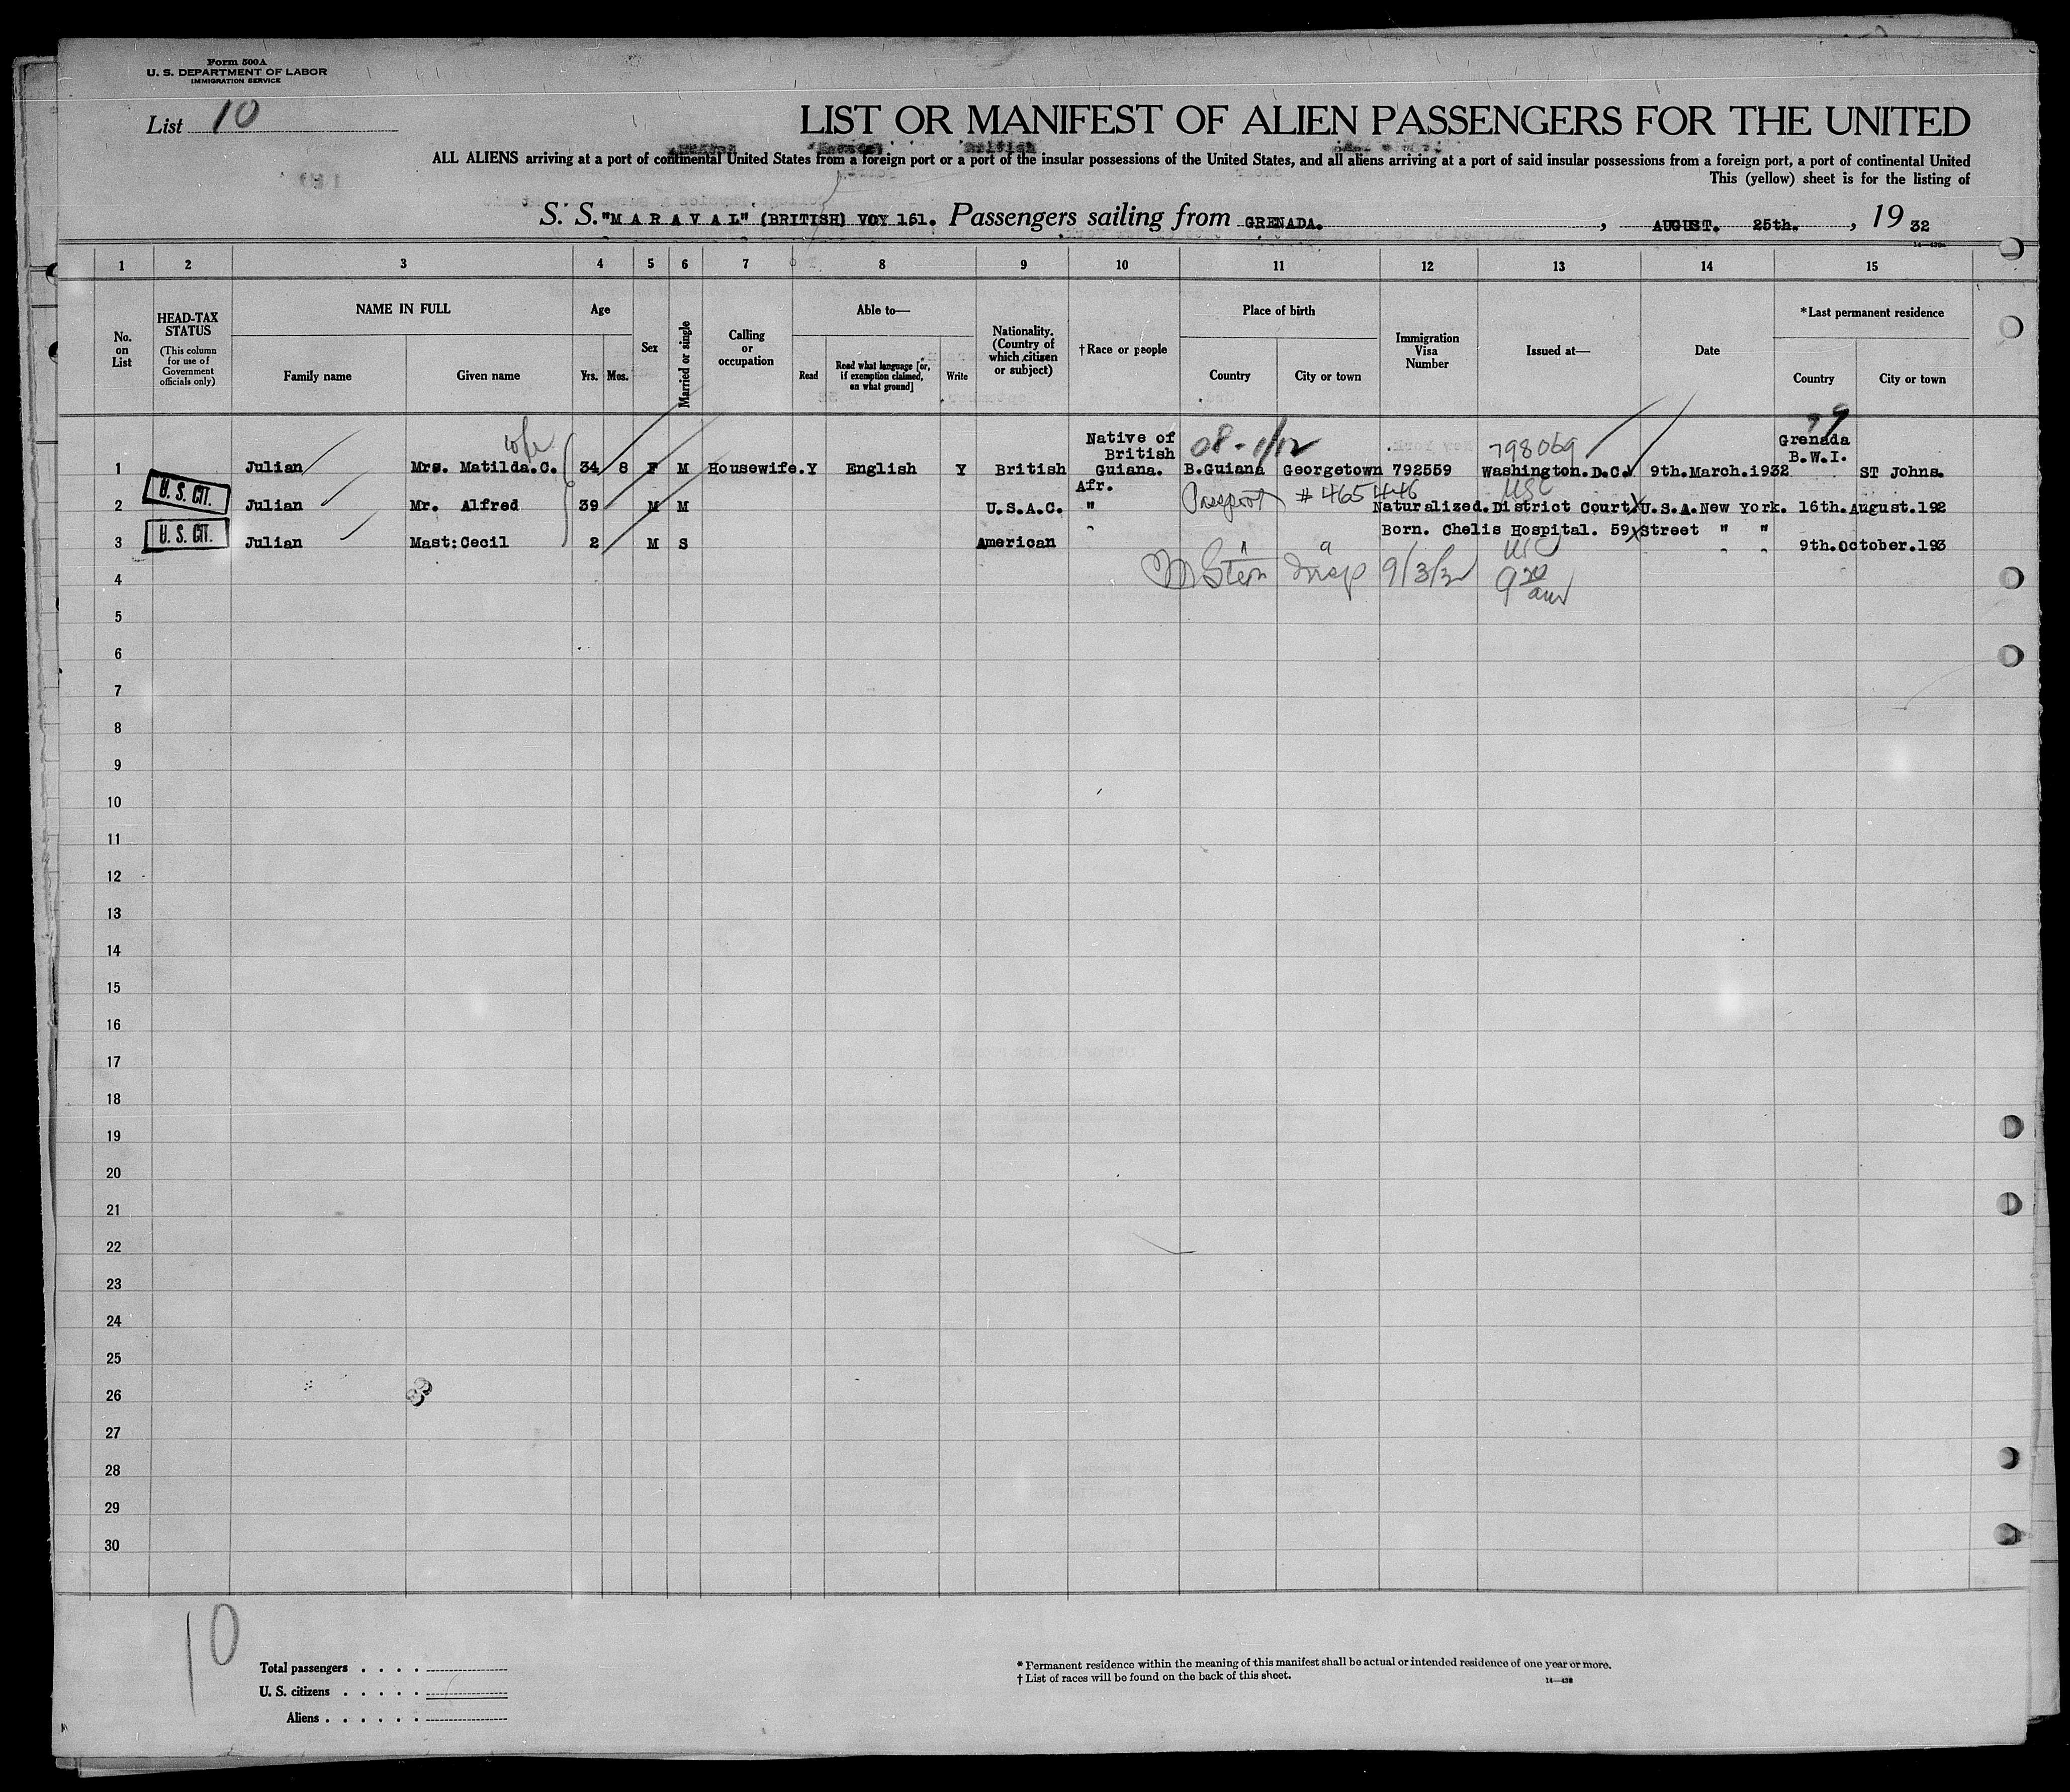 Form 500A
U. S. DEPARTMENT OF LABOR
IMMIGRATION SERVICE
List 10
LIST OR MANIFEST OF ALIEN PASSENGERS FOR THE UNITED
ALL ALIENS arriving at a port of continental United States from a foreign port or a port of the insular possessions of the United States, and all aliens arriving at a port of said insular possessions from a foreign port, a port of continental United
This (yellow) sheet is for the listing of
S. S. "M A R A V A L" (BRITISH) VOY 161. Passengers sailing from GRENADA. , AUGUST. 25th. , 19 32
1 2 3 4 5 6 7 8 9 10 11 12 13 14 15
No. on List
HEAD-TAX STATUS
(This column for use of Government officials only)
NAME IN FULL
Family name Given name
Age
Yrs. Mos.
Sex
Married or single
Calling or occupation
Able to—
Read Read what language [or, if exemption claimed, on what ground] Write
Nationality. (Country of which citizen or subject)
†Race or people
Place of birth
Country City or town
Immigration Visa Number
Issued at—
Date
*Last permanent residence
Country City or town
wife Native of British 08-1/12 798069 79 Grenada B.W.I.
1 Julian Mrs. Matilda.C. 34 8 F M Housewife. Y English Y British Guiana. B.Guiana Georgetown 792559 Washington.D.C. 9th.March.1932 ST Johns.
Afr. Passport # 465446 USC
2 U. S. CIT. Julian Mr. Alfred 39 M M U.S.A.C. " Naturalized.District Court U.S.A.New York. 16th.August.192
Born. Chelis Hospital. 59 Street " "
3 U. S. CIT. Julian Mast:Cecil 2 M S American " " USC 9th.October.193
4 M Stern Insp 9/3/32 9 30 am
5
6
7
8
9
10
11
12
13
14
15
16
17
18
19
20
21
22
23
24
25
26
27
28
29
30
10
Total passengers . . . .
U. S. citizens . . . . .
Aliens . . . . . .
* Permanent residence within the meaning of this manifest shall be actual or intended residence of one year or more.
† List of races will be found on the back of this sheet.
14—430